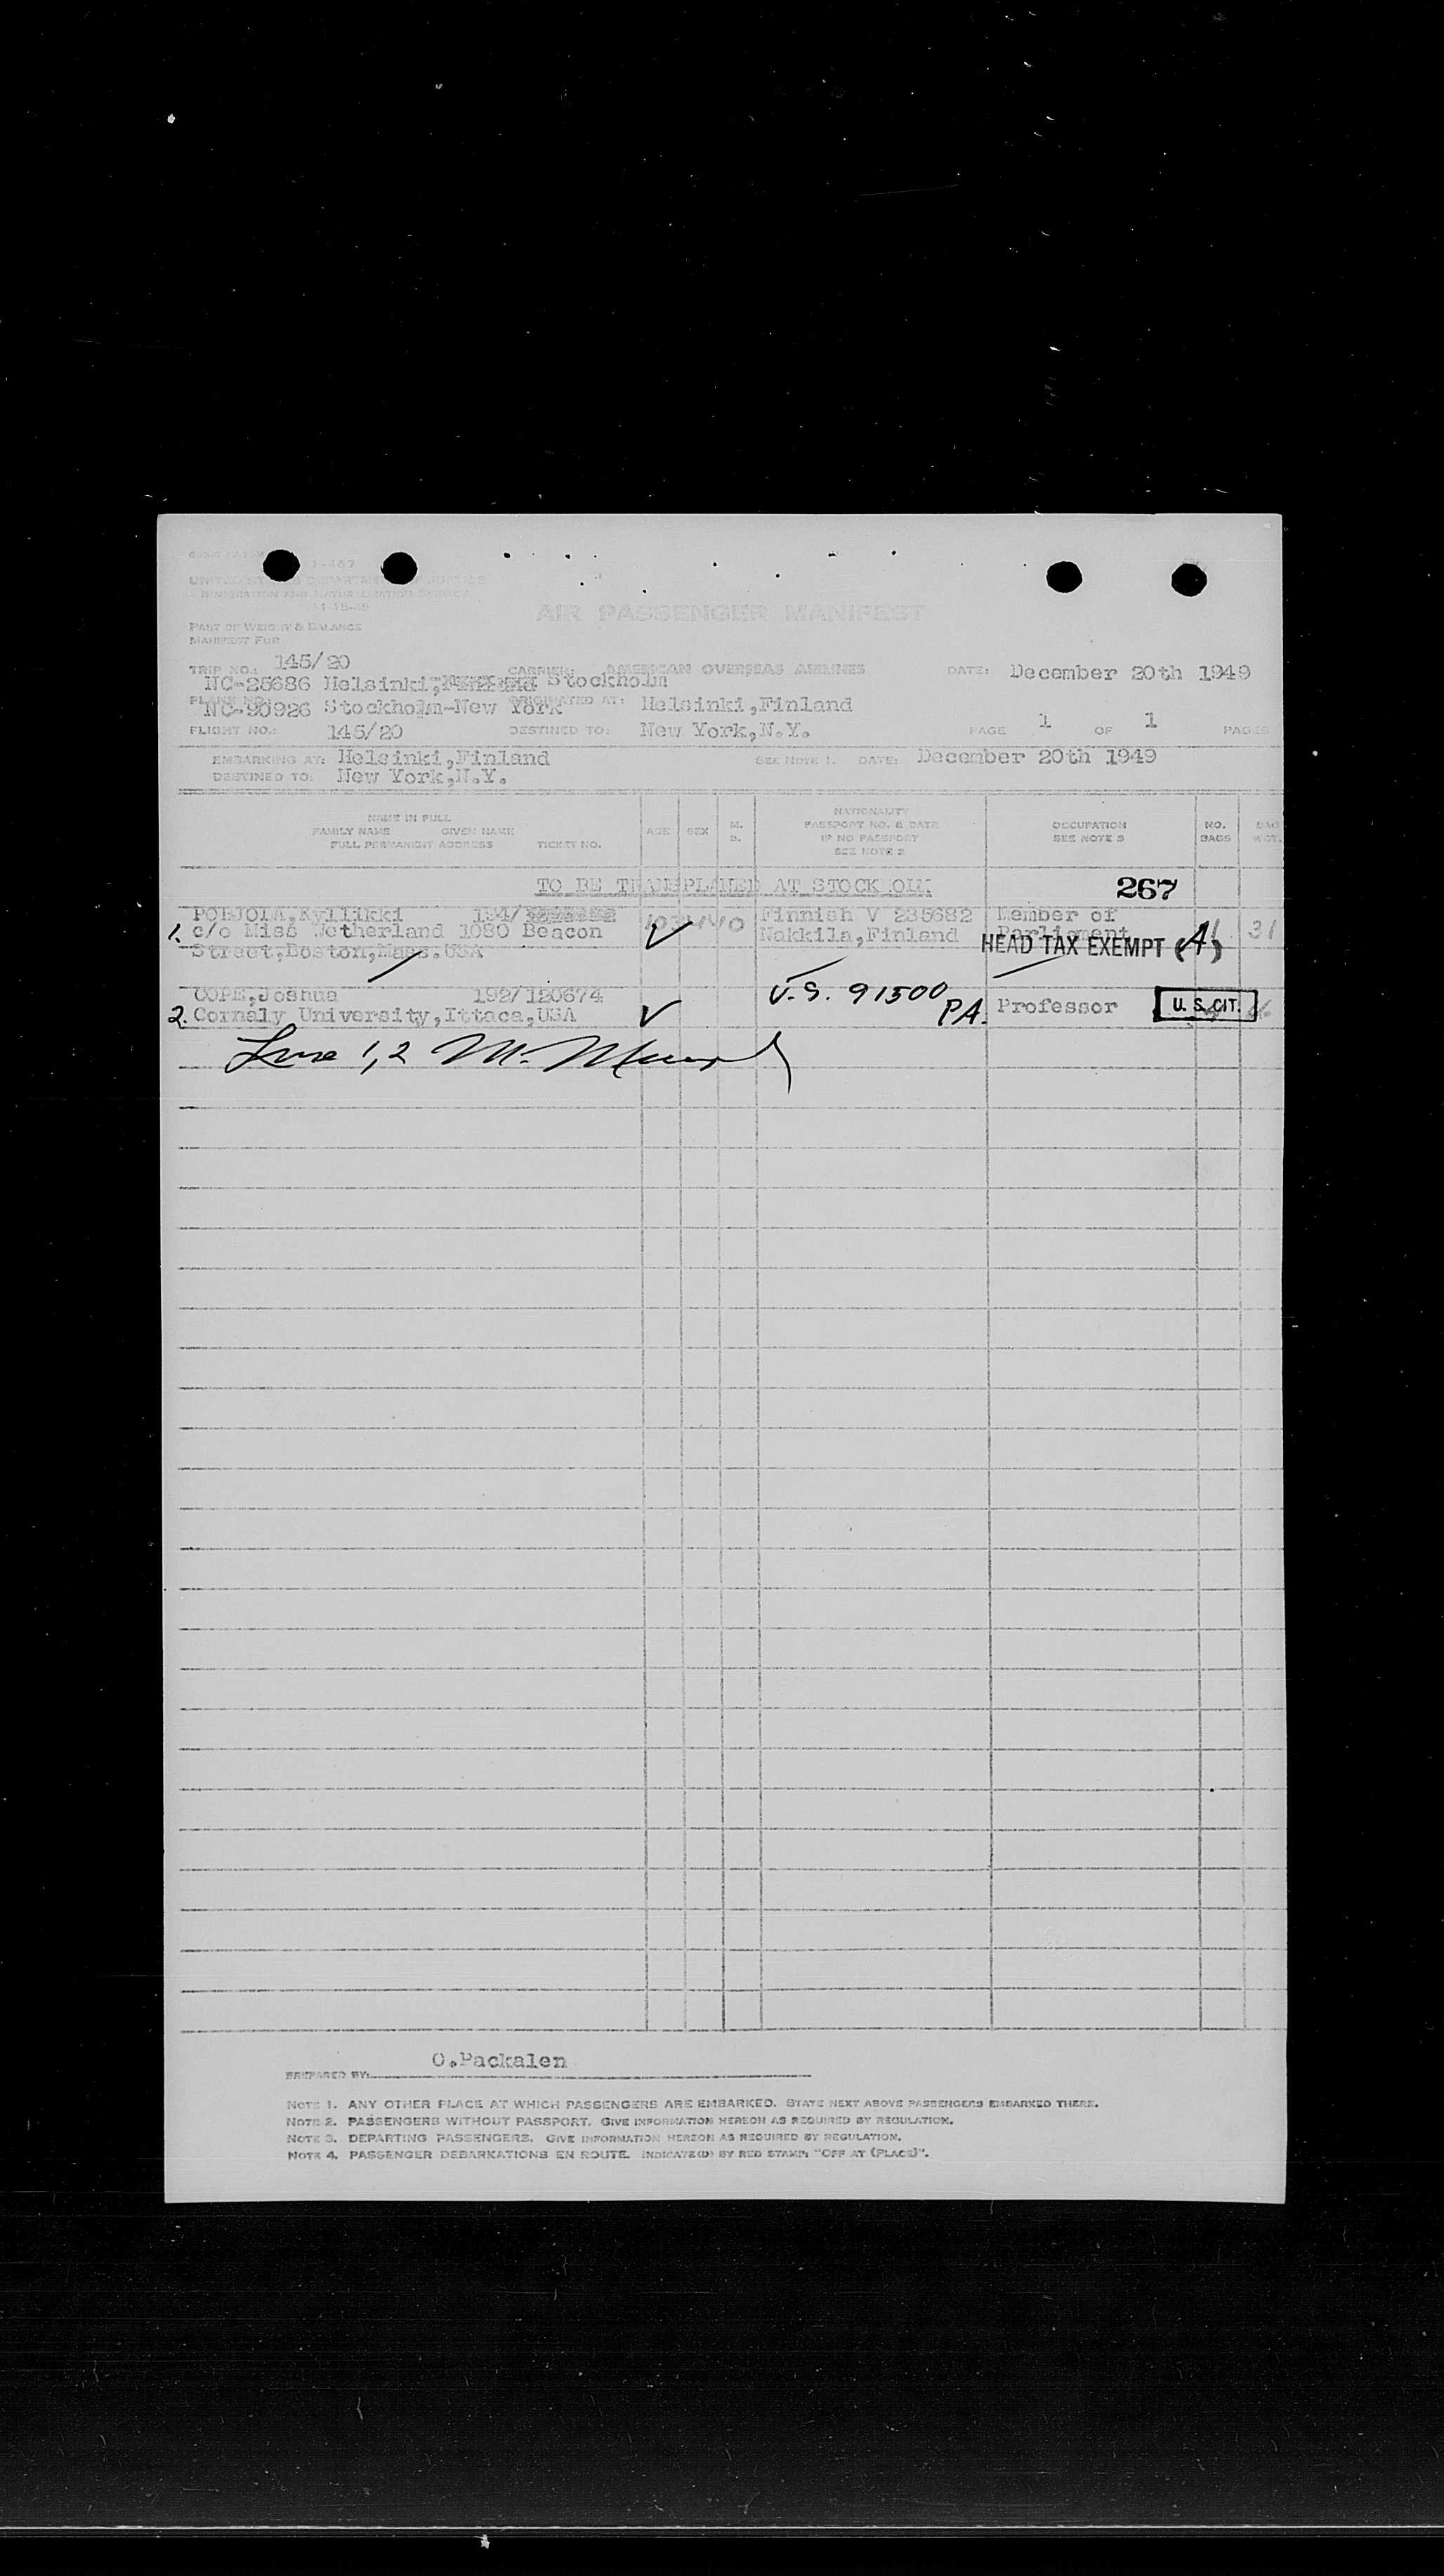 I-467
UNITED STATES DEPARTMENT OF JUSTICE
IMMIGRATION AND NATURALIZATION SERVICE
11-15-45
AIR PASSENGER MANIFEST
PART OF WEIGHT & BALANCE
MANIFEST FOR
TRIP NO.: 145/20 CARRIER: AMERICAN OVERSEAS AIRLINES DATE: December 20th 1949
NC-25686 Helsinki, Stockholm
PLANE NO. NC-90926 Stockholm-New York ORIGINATED AT: Helsinki,Finland
FLIGHT NO.: 145/20 DESTINED TO: New York,N.Y. PAGE 1 OF 1 PAGES
EMBARKING AT: Helsinki,Finland SEE NOTE 1. DATE: December 20th 1949
DESTINED TO: New York,N.Y.
NAME IN FULL
FAMILY NAME GIVEN NAME
FULL PERMANENT ADDRESS TICKET NO. AGE SEX M. S. NATIONALITY PASSPORT NO. & DATE IF NO PASSPORT SEE NOTE 2 OCCUPATION SEE NOTE 3 NO. BAGS BAG WGT.
TO BE TRANSPLANED AT STOCKHOLM 267
POHJOLA,Kyllikki 194/ Finnish V 235682 Member of
1. c/o Miss Netherland 1080 Beacon Nakkila,Finland Parliament 1 31
Street,Boston,Mass.USA HEAD TAX EXEMPT (A)
COPE,Joshua 192/120674 U.S. 91500
2. Cornaly University,Ittaca,USA PA. Professor U. S. CIT.
Line 1,2 M.
PREPARED BY: O.Packalen
NOTE 1. ANY OTHER PLACE AT WHICH PASSENGERS ARE EMBARKED. STATE NEXT ABOVE PASSENGERS EMBARKED THERE.
NOTE 2. PASSENGERS WITHOUT PASSPORT. GIVE INFORMATION HEREON AS REQUIRED BY REGULATION.
NOTE 3. DEPARTING PASSENGERS. GIVE INFORMATION HEREON AS REQUIRED BY REGULATION.
NOTE 4. PASSENGER DEBARKATIONS EN ROUTE. INDICATE(D) BY RED STAMP: "OFF AT (PLACE)".